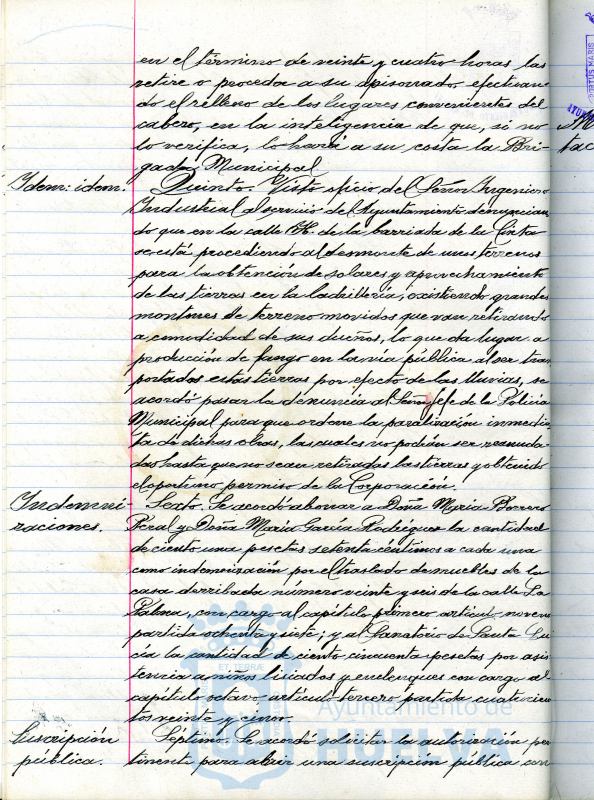 en el término de veinte y cuatro horas las
retire o proceda a su apisonado efectuan
do el relleno de los lugares convenientes del
cabezo, en la inteligencia de que, si no
lo verifica, lo hará a su costa la Bri
gada Municipal
Idem: idem. Quinto. Visto oficio del Señor Ingeniero
Industrial al servicio del Ayuntamiento denuncian
do que en la calle H. de la barriada de la Cinta
se está procediendo al desmonte de unos terrenos
para la obtención de solares y aprovechamiento
de las tierras en la ladrillería, existiendo grandes
montones de terreno movidos que van retirando
a comodidad de sus dueños, lo que da lugar a
producción de fango en la vía pública al ser trans
portados estas tierras por efecto de las lluvias, se
acordó pasar la denuncia al Señor Jefe de la Policía
Municipal para que ordene la paralización inmedia
ta de dichas obras, las cuales no podrán ser reanuda-
das hasta que no sean retiradas las tierras y obtenido
el oportuno permiso de la Corporación.
Indemni- Sexto. Se acordó abonar a Doña María Borrero
zaciones. Peral y Doña María García Rodríguez la cantidad
de ciento una pesetas setenta céntimos a cada una
como indemnización por el traslado de muebles de la
casa derribada número veinte y seis de la calle La
Palma, con cargo al capítulo primero artículo noveno
partida ochenta y siete; y al Sanatorio de Santa Lu
cía la cantidad de ciento cincuenta pesetas por asis
tencia a niños lisiados y enclenques con cargo al
capítulo octavo artículo tercero partida cuatrocien
tos veinte y cinco.
Suscripción Septimo. Se acordó solicitar la autorización per
pública. tinente para abrir una suscripción pública con
Ayuntamiento de
HUELVA